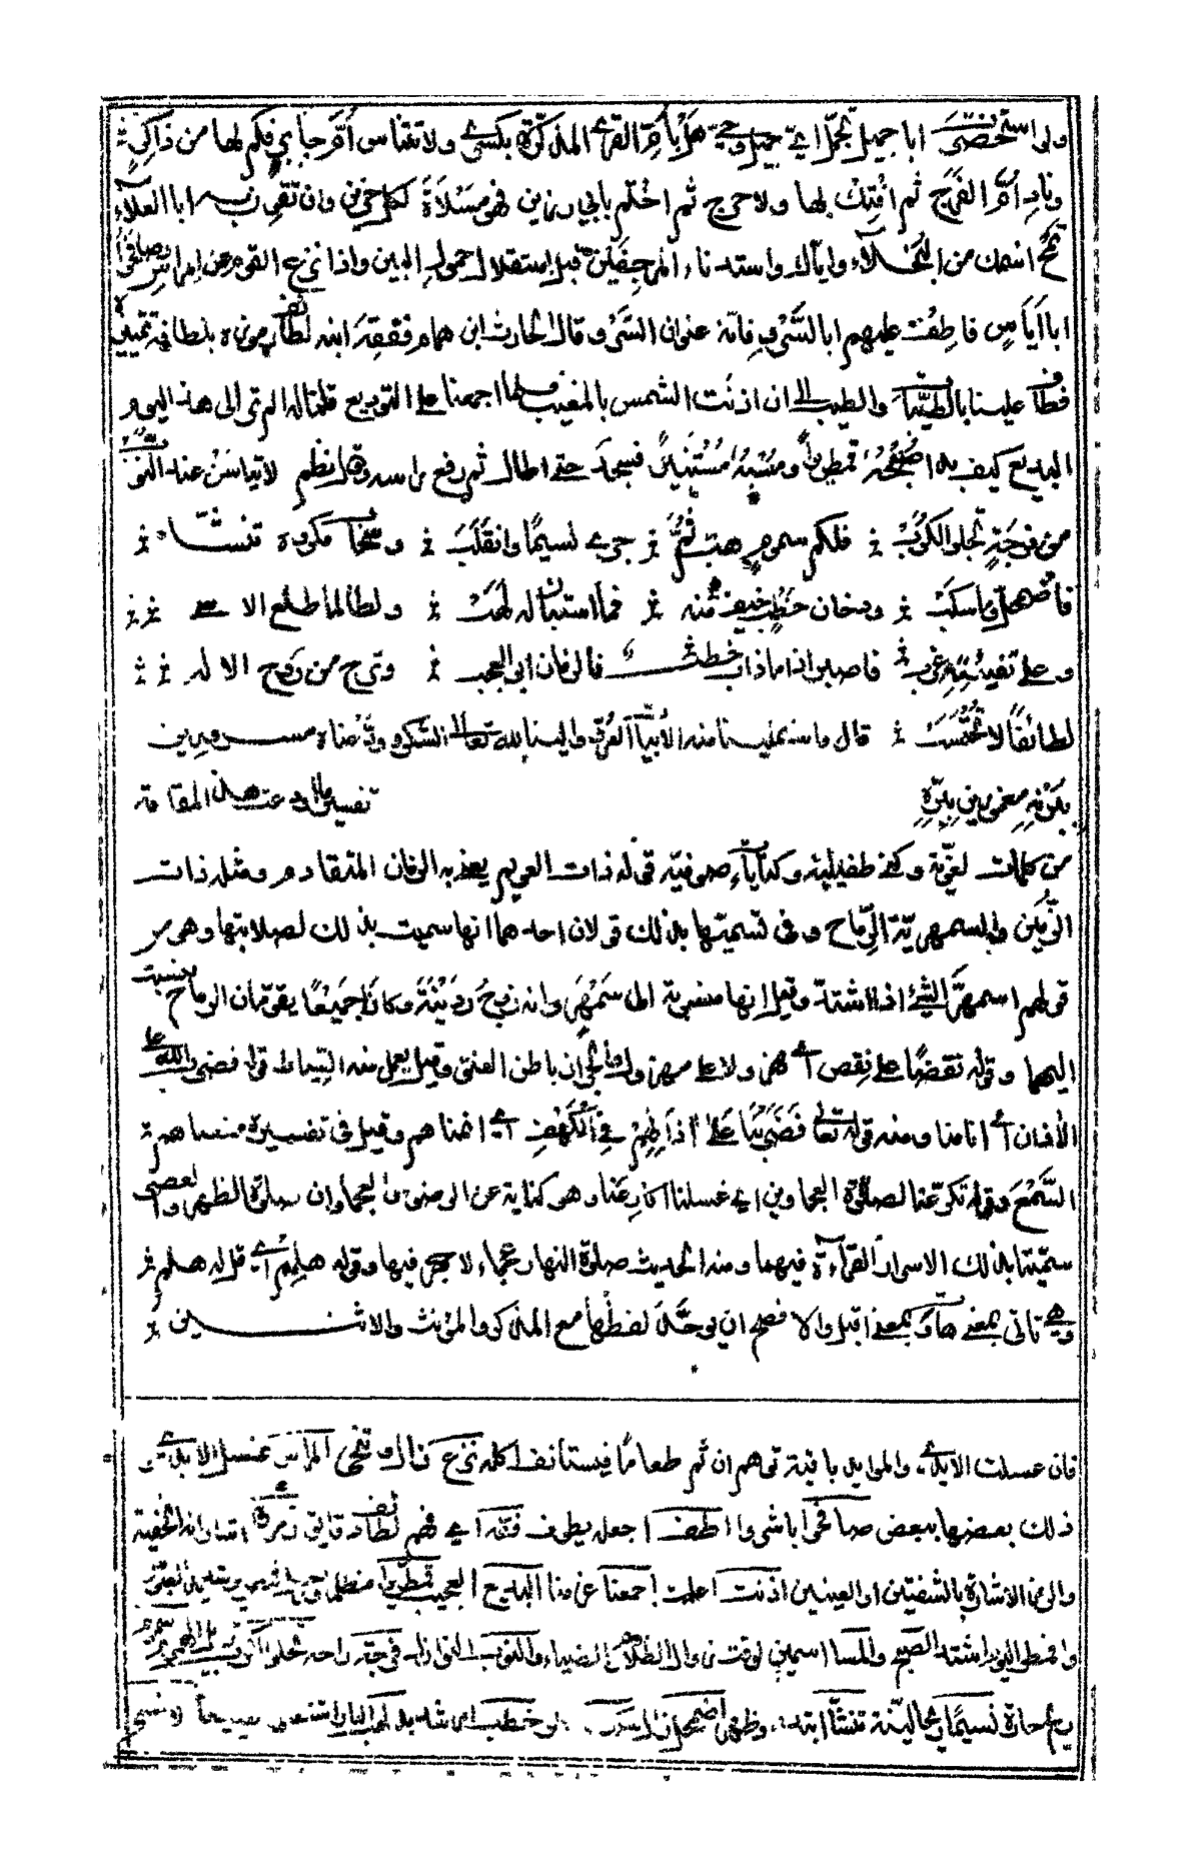 ولو استحضرت ابا جميل تجمّل ايّ جميل وحيّ هَل بأمّ القرى المذكّرة بكسرى ولا تتناس امّ جابر فكم لها من ذاكر
وناد امّ الفرج ثم افتك بها ولا حرج ثم اختم بابي رزين فهو مسلاة لكل حزين وان تقرن به ابا العلاء
تمح اسمك من البخلاء واياك واستدناء المرجفين قبل استقلال حمول البين واذا نزع القوم عن المراس وصافحوا
ابا اياس فاطف عليهم ابا السرو فانه عنوان السرو قال الحارث ابن همام ففقه ابنه لطائف رموزه بلطافة تمييزه
فطاف علينا بالطيبات والطيب الى ان اذنت الشمس بالمغيب فلما اجمعنا على التوديع قلنا له الم تر الى هذا اليوم
البديع كيف بدا صبحه قمطريرا ومسيه مستنيرا فسجد حتى اطال ثم رفع راسه وقال نظم لا تيأسن عند النوب
من فرجة تجلو الكرب فلكم سموم هب ثمّ جرى نسيما وانقلب وسحاب مكروه تنشّا
فاضمحل وما سكب ودخان خطب خيف منه فما استبان له لهب ولطالما طلع الاسى
وعلى تفيئته غرب فاصبر اذا ما ناب خطب فالزمان ابو العجب وترج من روح الاله
لطائفا لا تحتسب قال فاستملينا منه الابيات الغرّ ووالينا لله تعالى الشكر وودّعناه مسرورين
ببرئه مغمورين ببرّه تفسير ما اودع هذه المقامة
من كلمات لغويّة وكنى طفيلية وكنايات صوفيّة قوله ذات العويم يعني به الزمان المتقادم ومثله ذات
الزّمين والسمهريّة الرّماح وفي تسميتها بذلك قولان احدهما انها سميت بذلك لصلابتها وهو من
قولهم اسمهرّ الشيء اذا اشتدّ وقيل انها منسوبة الى سمهر وانه زوج ردينة وكانا جميعًا يقوّمان الرماح فنسبت
اليهما وقوله نقضًا على نقض اي مهزولا على مهزول والجران باطن العنق وقيل يعمل منه السياط قوله فضرب الله على
الآذان اي انامنا ومنه قوله تعالى فضربنا على اذانهم في الكهف اي انمناهم وقيل في تفسيره منعناهم
السمع وقوله تكرّعنا لصلوة العجماوين اي غسلنا اكارعنا وهو كناية عن الوضوء والعجماوان صلوة الظهر والعصر
سميّتا بذلك الاسرار القراءة فيهما ومنه الحديث صلوة النهار عجماء لا جهر فيها وقوله هلمم اي قل له هلم
وهي تاتي بمعنى هات وبمعنى اقبل والافصح ان يوحّد لفظها مع المذكر والمؤنث والاثنين
فان غسلت الايدي والموايد باقية توهم ان ثم طعاما فيستأنف اكله نزع زال وتنحى المراس غسل الايدي و
ذلك بعضها ببعض صافحوا باشروا اطف اجعله يطوف فقه اي فهم لطائف دقايق رموزه اشاراته الخفية
والرمز الاشارة بالشفتين او العينين اذنت اعلمت اجمعنا عزمنا البديع العجيب قمطريرا مظلما
واقمطر اليوم اشتد الصبح والمسا اسمين لوقت زوال الظلام الضياء والنوب النوازل فرجة راحة تجلو
ريح حارة نسيما ريحا لينة تنشّا ابتدا وظهر اضمحل زال خطب امر شديد